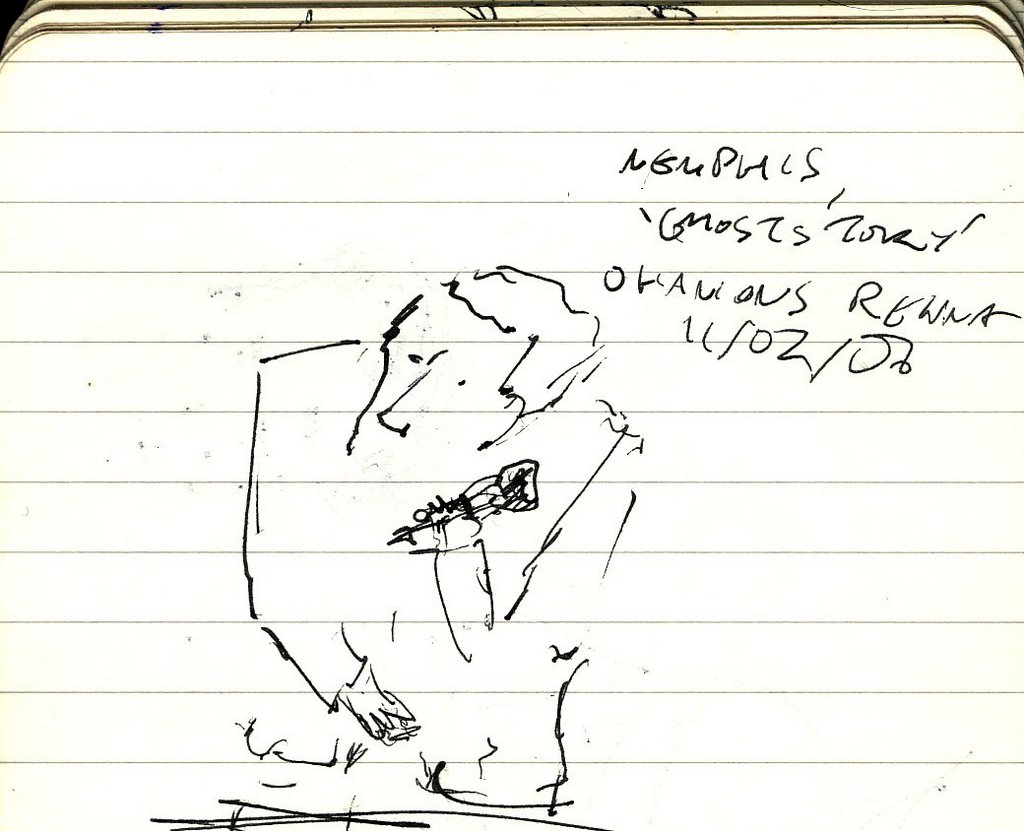 MEMPHIS,
'GHOSTSTORY'
OHANIONS RENNA
11/02/08